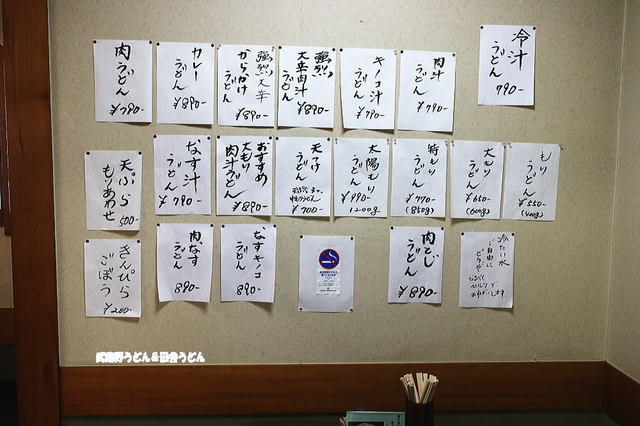 冷汁
うどん
790-
肉汁
うどん
¥790-
キノコ汁
うどん
¥790-
強烈!!
大辛肉汁
うどん
¥890-
強烈大辛
からかけ
うどん
¥890-
カレー
うどん
¥890-
肉うどん
¥790-
もり
うどん
¥550-
(400g)
大もり
うどん
¥650-
(600g)
特もり
うどん
¥770-
(850g)
太陽もり
うどん
¥990-
1200g
天つけ
うどん
¥700-
おすすめ
大もり
肉汁うどん
¥890-
なす汁
うどん
¥790-
天ぷら
もりあわせ
500-
冷たい水
ご自由に
どうぞ
セルフで
お願いします。
肉とじ
うどん
¥890-
なすキノコ
うどん
890-
肉なす
うどん
890-
きんぴら
ごぼう
¥200-
武蔵野うどん&田舎うどん